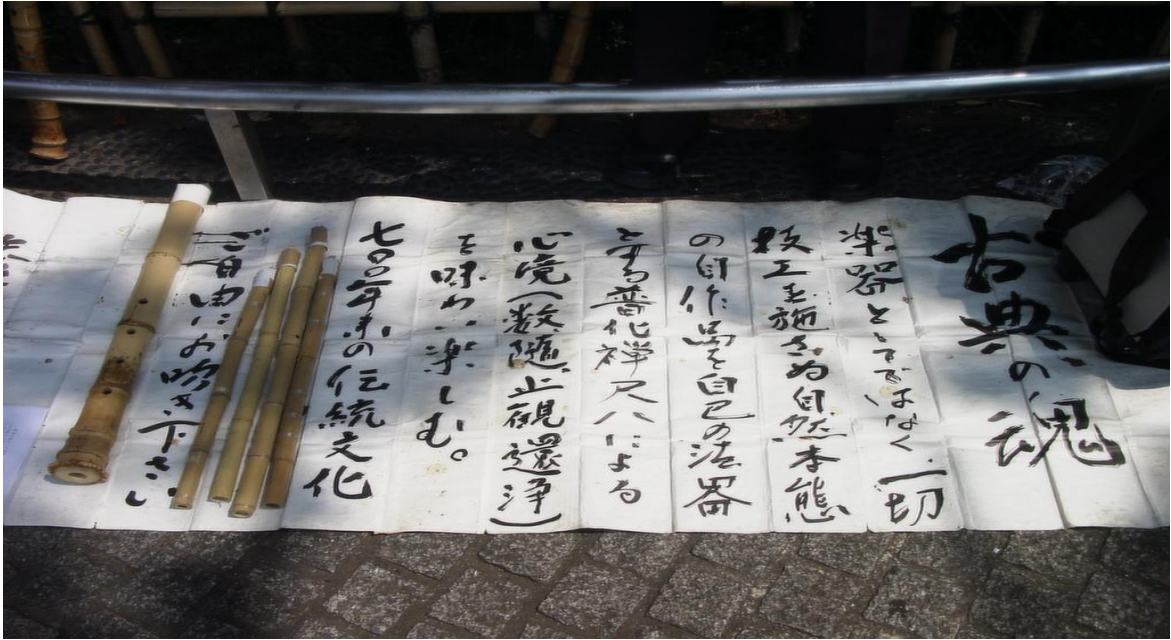 古典の魂
楽器としてではなく、一切
技工を施さぬ自然本態
の自作笛を自己の法器
とする普化禅尺八による
心境(数隨止観還浄)
を味わい楽しむ。
七〇〇年来の伝統文化
ご自由にお吹き下さい